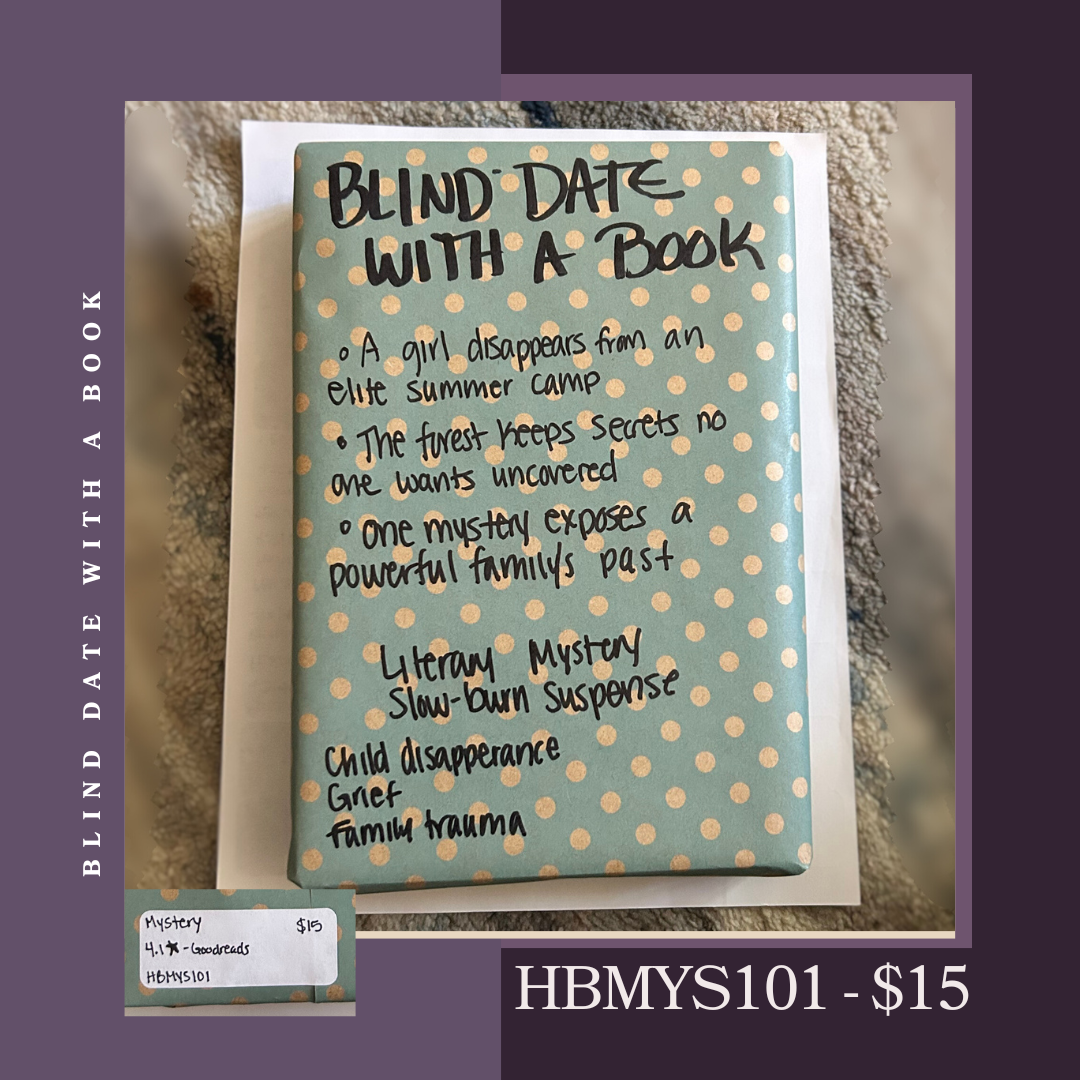 BLIND DATE WITH A BOOK
BLIND DATE
WITH A BOOK
• A girl disappears from an
elite summer camp
• The forest keeps secrets no
one wants uncovered
• One mystery exposes a
powerful family's past
Literary Mystery
Slow-burn Suspense
Child disapperance
Grief
Family trauma
Mystery $15
4.1★-Goodreads
HBMYS101
HBMYS101 - $15